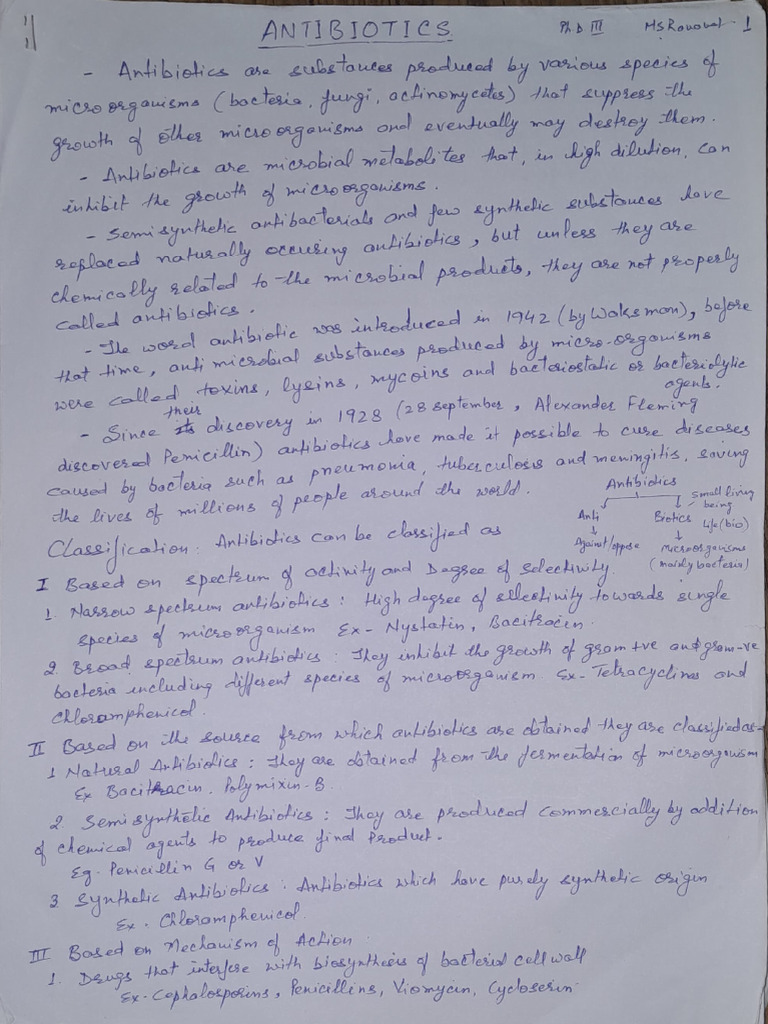 ANTIBIOTICS
Ph.D III
MSRanawat - 1
- Antibiotics are substances produced by various species of
microorganisms (bacteria, fungi, actinomycetes) that suppress the
growth of other microorganisms and eventually may destroy them.
- Antibiotics are microbial metabolites that, in high dilution, can
inhibit the growth of microorganisms.
- Semisynthetic antibacterials and few synthetic substances have
replaced naturally occuring antibiotics, but unless they are
chemically related to the microbial products, they are not properly
called antibiotics.
- The word antibiotic was introduced in 1942 (by Waksman), before
that time, antimicrobial substances produced by micro-organisms
were called toxins, lysins, mycoins and bacteriostatic or bacteriolytic
agents.
- Since their discovery in 1928 (28 september, Alexander Fleming
discovered Penicillin) antibiotics have made it possible to cure diseases
caused by bacteria such as pneumonia, tuberculosis and meningitis, saving
the lives of millions of people around the world.
Antibiotics
Anti
Against/oppose
Biotics
small living
being
life (bio)
Microorganisms
(mainly bacteria)
Classification: Antibiotics can be classified as
I Based on spectrum of activity and Degree of selectivity
1. Narrow spectrum antibiotics: High degree of selectinity towards single
species of microorganism Ex- Nystatin, Bacitracin.
2. Broad spectrum antibiotics: They inhibit the growth of gram +ve and gram -ve
bacteria including different species of microorganism. Ex- Tetracyclines and
Chloramphenicol.
II Based on the source from which antibiotics are obtained they are classified as-
1 Natural Antibiotics: They are obtained from the fermentation of microorganism
Ex Bacitracin. Polymixin-B.
2. Semisynthetic Antibiotics: They are produced commercially by addition
of chemical agents to produce final product.
Eg. Penicillin G or V
3. Synthetic Antibiotics: Antibiotics which have purely synthetic origin
Ex. Chloramphenicol.
III Based on Mechanism of Action:
1. Drugs that interfere with biosynthesis of bacterial cell wall
Ex- Cephalosporins, Penicillins, Viomycin, Cycloserin